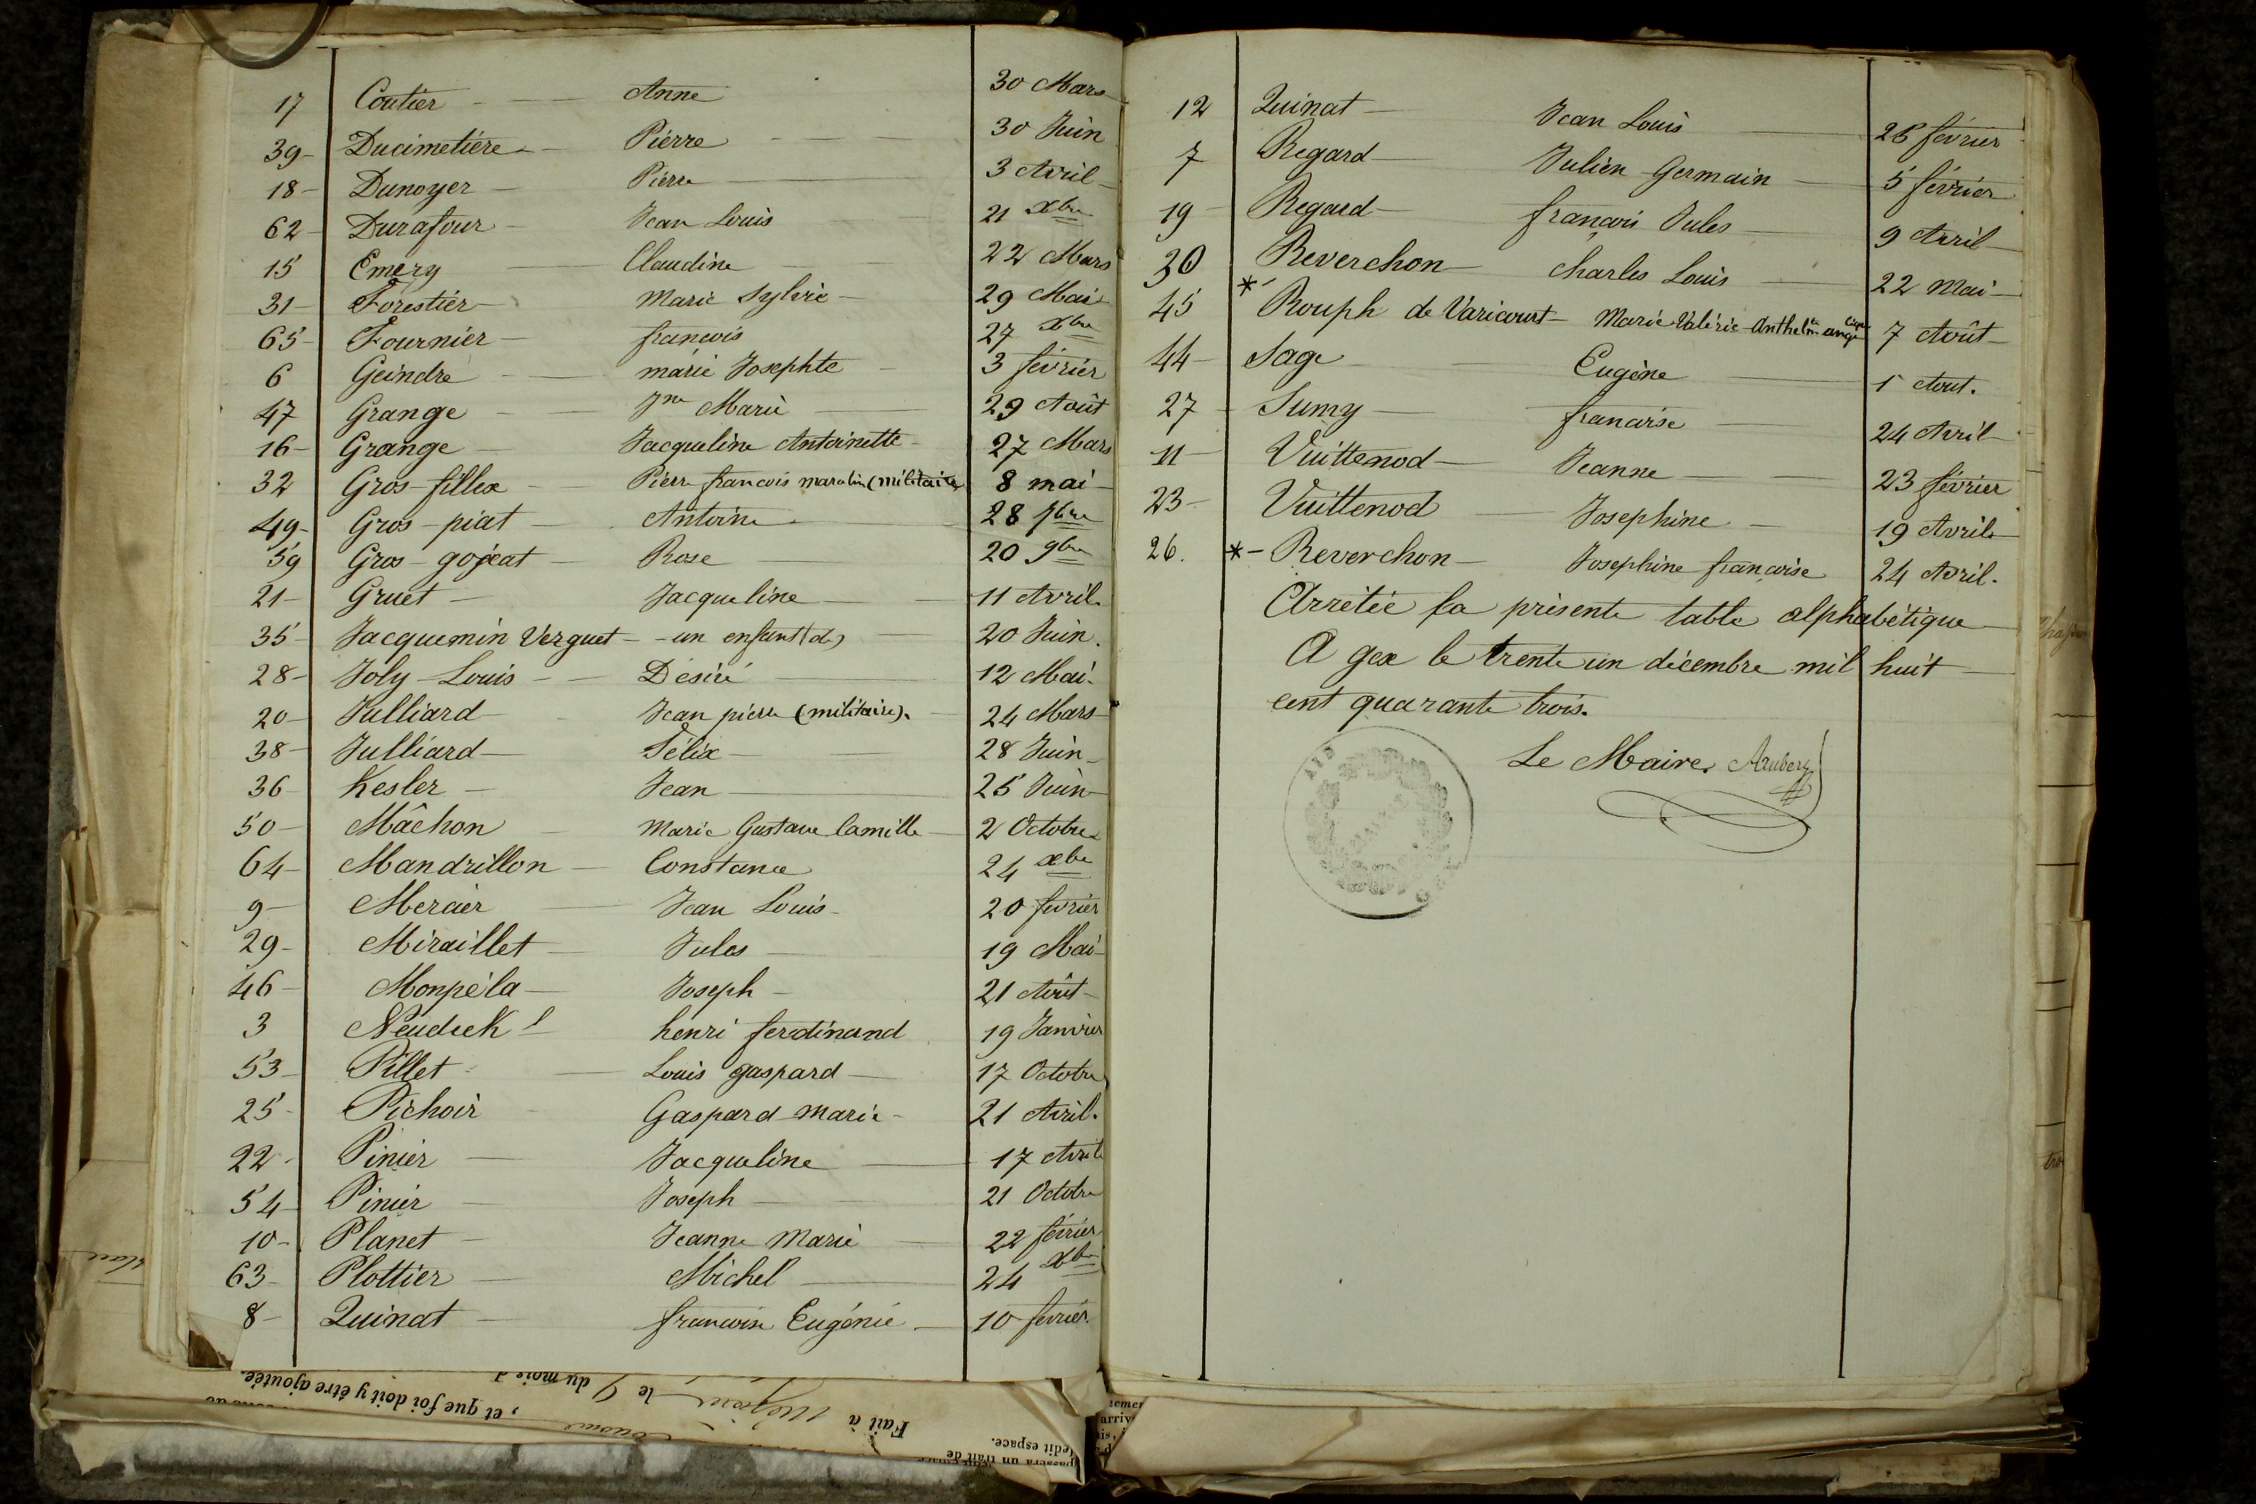 17 Coutier Anne 30 Mars
39 Ducimetière Pierre 30 Juin
18 Dunoyer Pierre 3 Avril
62 Durafour Jean Louis 21 xbre
15 Emery Claudine 22 Mars
31 Forestier Marie Sylvie 29 Mai
65 Fournier françois 27 xbre
6 Geindre marie Josephte 3 février
47 Grange Jne Marie 29 Août
16 Grange Jacqueline Antoinette 27 Mars
32 Gros-fillex Pierre françois (militaire) 8 mai
49 Gros-piat Antoine 28 7bre
59 Gros-gojeat Rose 20 9bre
21 Gruet Jacqueline 11 Avril
35 Jacquemin Verguet un enfant (de) 20 Juin
28 Joly-Louis Désiré 12 Mai
20 Julliard Jean pierre (militaire). 24 Mars
38 Julliard Félix 28 Juin
36 Kesler Jean 25 Juin
50 Mâchon Marie Gustave Camille 2 Octobre
64 Mandrillon Constance 24 xbre
9 Mercier Jean Louis 20 février
29 Miraillet Jules 19 Mai
46 Monpéla Joseph 21 Août
3 henri ferdinand 19 Janvier
53 Pillet Louis gaspard 17 Octobre
25 Pichoir Gaspard Marie 21 Avril.
22 Pinier Jacqueline 17 Avril
54 Pinier Joseph 21 Octobre
10 Planet Jeanne Marie 22 février
63 Plottier Michel 24 xbre
8 Quinat françoise Eugénie 10 février
12 Quinat Jean Louis 26 février
7 Regard Julien Germain 5 février
19 Regard françois Jules 9 Avril
30 Reverchon Charles Louis 22 Mai
* 45 Rouph de Varicourt Marie Valérie Anthelmte angélique 7 Août
44 Sage Eugène 1 Aout.
27 Sumy francoise 24 Avril
11 Vuittenod Jeanne 23 février
23 Vuittenod Josephine 19 Avril
26. * Reverchon Josephine françoise 24 Avril.
Arrêtée la présente table alphabétique
A gex le trente un décembre mil huit
cent quarante trois.
Le Maire. Aubery
MAIRIE
GEX
Fait à
le 9 du mois d
, et que foi doit y être ajoutée.
ledit espace.
passera un trait de